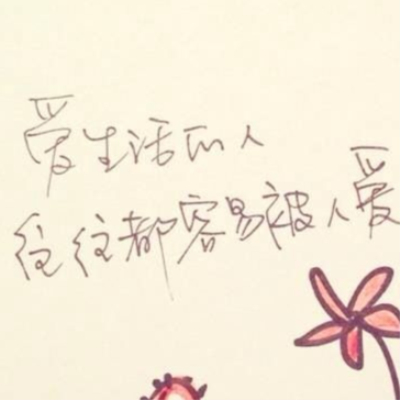 爱生活的人
往往都容易被人爱